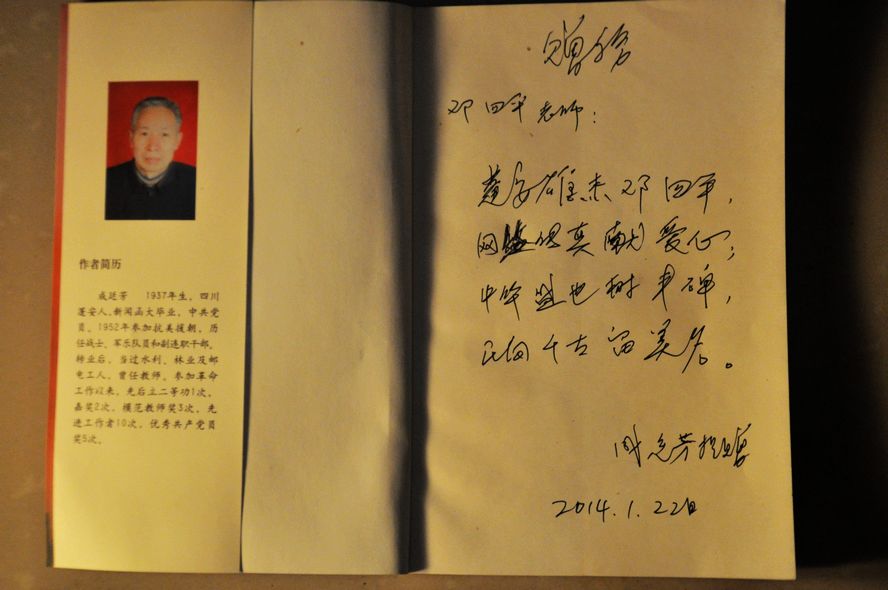 作者简历
戚廷芳 1937年生，四川
蓬安人，新闻函大毕业，中共党
员。1952年参加抗美援朝，历
任战士、军乐队员和副连职干部。
转业后，当过水利、林业及邮
电工人，曾任教师。参加革命
工作以来，先后立二等功1次，
嘉奖2次，模范教师奖3次，先
进工作者10次，优秀共产党员
奖5次。
赠
邓四平老师：
雄杰邓四平，
网 真献爱心；
中华盛世树丰碑，
千古留美名。
芳
2014.1.22日